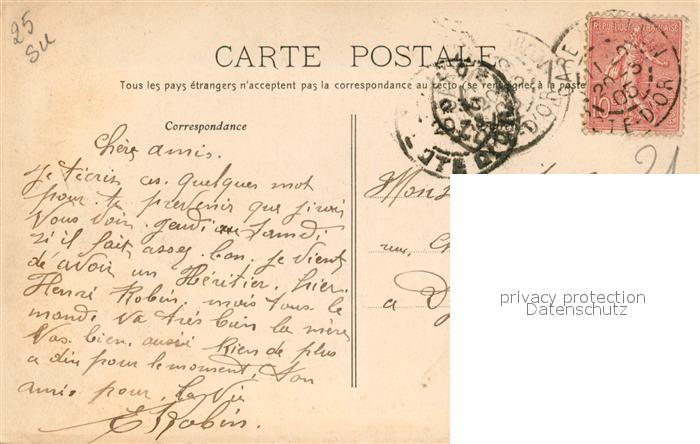 25
SU
CARTE POSTALE
Tous les pays étrangers n'acceptent pas la correspondance au recto (se renseigner à la poste
REPUBLIQUE FRANÇAISE
10
GARE
CÔTE-D'OR
Correspondance
Chère amis.
Je t'écris ces quelques mot
pour te prevenir que j'irai
Vous voir jeudi ou Samedi
si il fait assez bon. Je vient
de avoir un Héritier, hier.
Henri Robin, mais tous le
monde va très bien la mère
Vas bien aussi Rien de plus
a dir pour le moment, Ton
amis pour la vie
E Robin.
Mons
rue, Ch
a D
21
privacy protection
Datenschutz